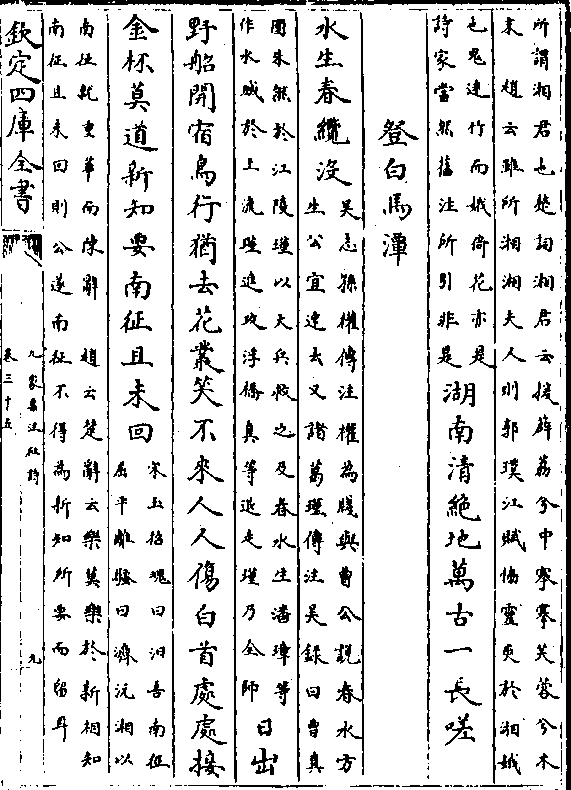 所謂湘君也楚詞湘君云援薜荔兮中搴搴芙蓉兮木
末 趙云雖所湘湘夫人則郭璞江賦協靈爽於湘娥
色鬼連竹而娥倚花亦是
詩家當然舊注所引非是
湖南清絶地萬古一長嗟
登白馬潭
水生春纜没
吳志孫權傳注權為牋與曹公說春水方
生公宜速去又諸葛瑾傳注吳録曰曹真
圍朱然於江陵瑾以大兵救之及春水生潘璋等
作水城於上流瑾進攻浮橋真等退走瑾乃全師
日出
野船開宿鳥行猶去花叢笑不來人人傷白首處處接
金杯莫道新知要南征且未回
宋玉招魂曰汩吾南征
屈平離騷曰濟沅湘以
南征就重華而陳辭 趙云楚辭云樂莫樂於新相知
南征且未回則公遂南征不得為新知所要而留耳
欽定四庫全書
九家集注杜詩
卷三十五
九